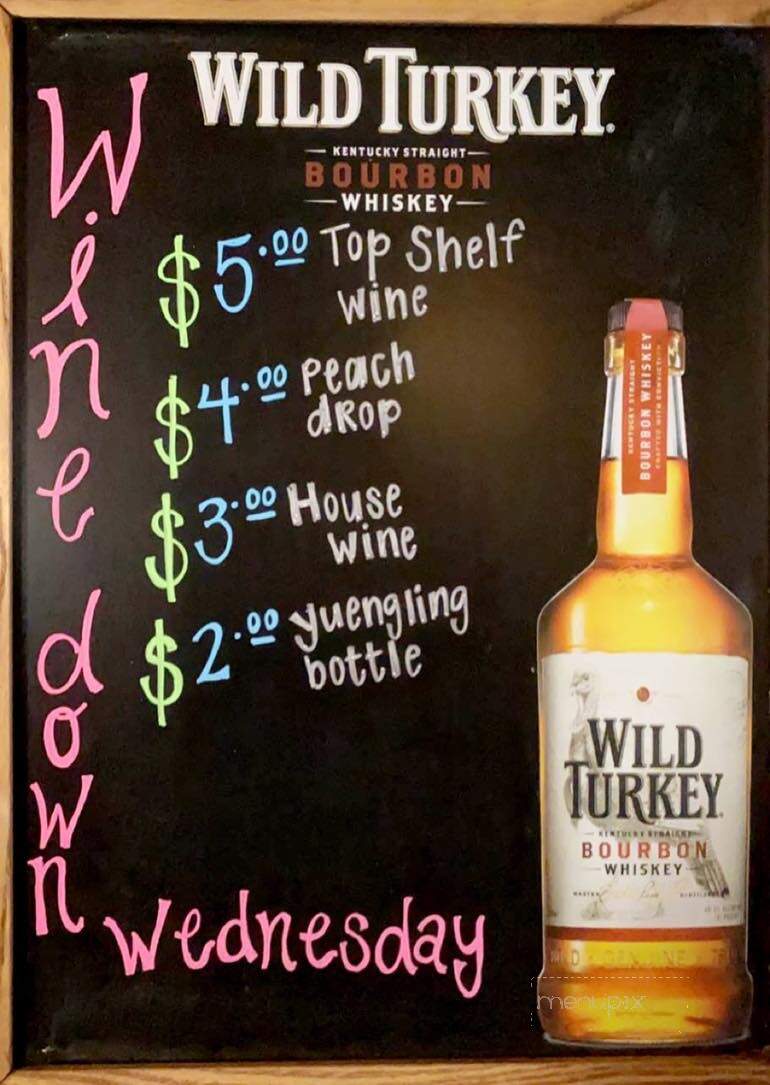 WILD TURKEY
KENTUCKY STRAIGHT
BOURBON
WHISKEY
Wine down
$5.00 Top Shelf
wine
$4.00 Peach
dRop
$3.00 House
wine
$2.00 yuengling
bottle
Wednesday
KENTUCKY STRAIGHT
BOURBON WHISKEY
CRAFTED WITH CONVICTION
WILD
TURKEY
KENTUCKY STRAIGHT
BOURBON
WHISKEY
MASTER
GENUINE
menupix